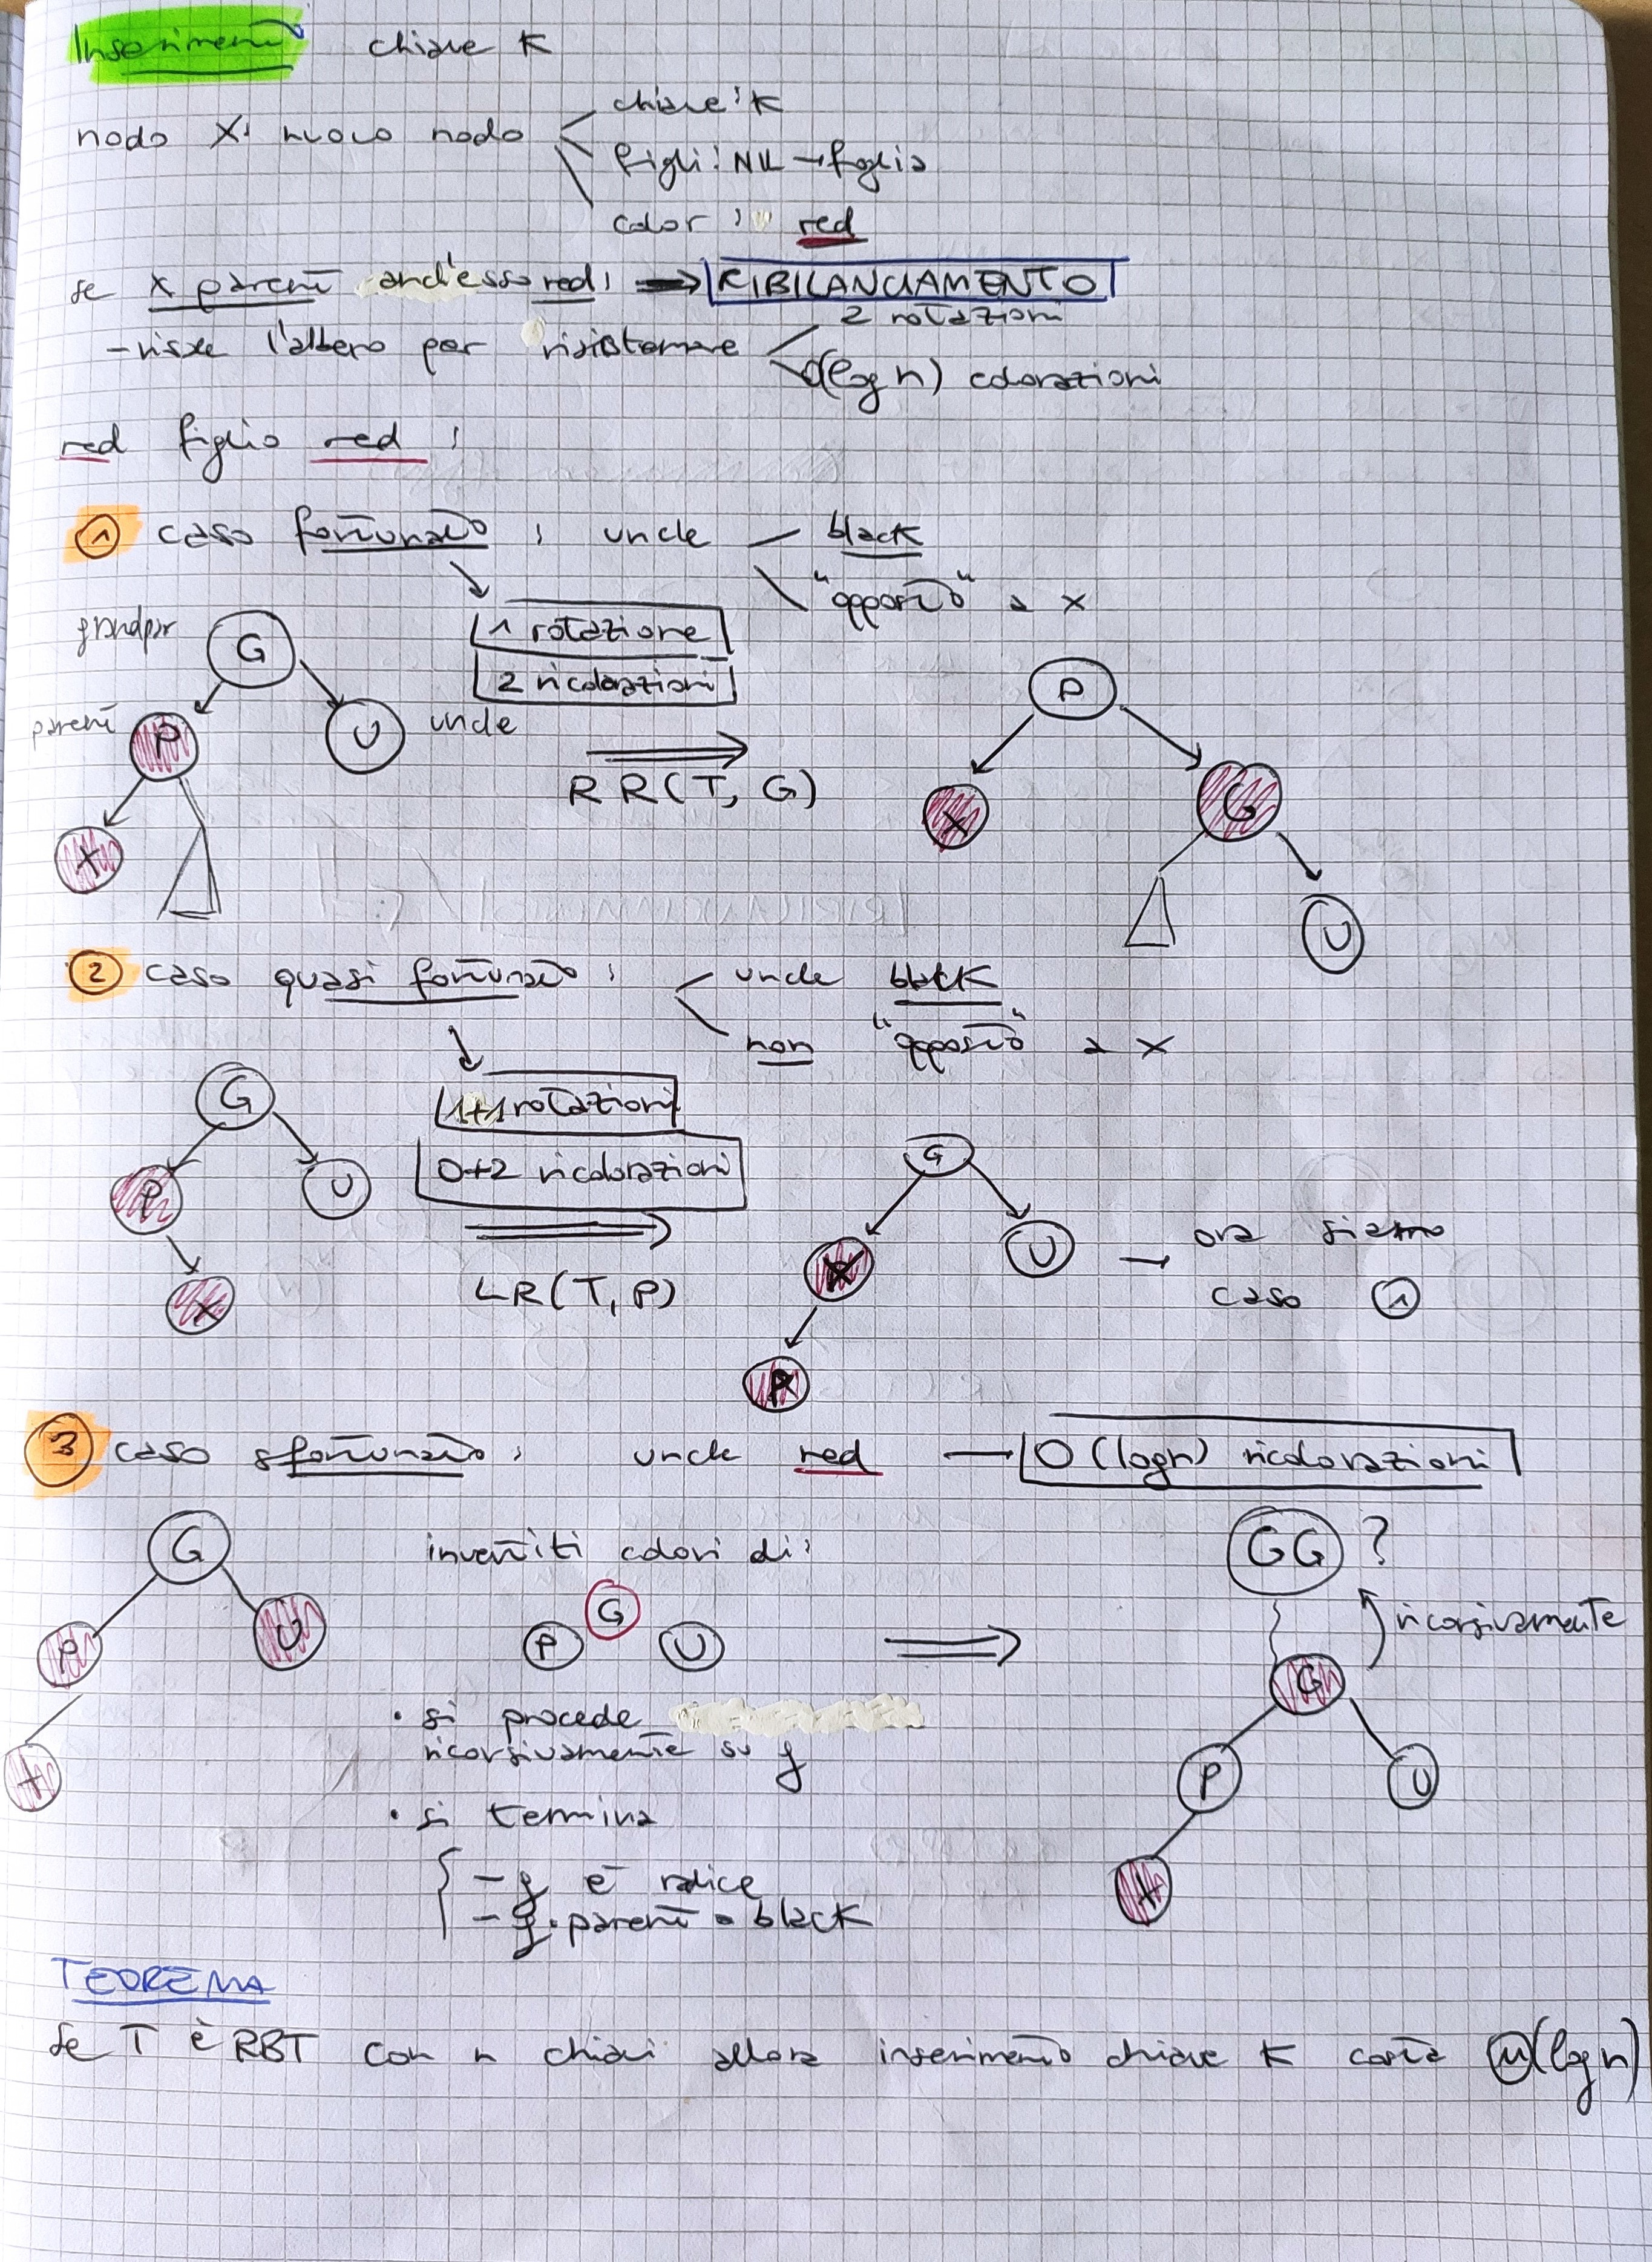 Inserimento chiave K
nodo X: nuovo nodo
chiave: K
figli: NIL → foglia
color: red
se x parent anch'esso red: → RIBILANCIAMENTO
- risale l'albero per risistemare
2 rotazioni
O(log n) colorazioni
red figlio red :
① caso fortunato : uncle
black
"opposto" a x
1 rotazione
2 ricolorazioni
grandpar
G
parent
P
U
uncle
X
RR(T, G)
P
X
G
U
② caso quasi fortunato :
uncle black
non "opposto" a x
1+1 rotazioni
0+2 ricolorazioni
G
P
U
X
LR(T, P)
G
X
U
P
→ ora siamo
caso ①
③ caso sfortunato : uncle red — O(log n) ricolorazioni
G
P
U
X
invertiti colori di:
G
P U
GG ?
ricorsivamente
G
P
U
X
• si procede
ricorsivamente su g
• si termina
- g è radice
- g.parent = black
TEOREMA
se T è RBT con n chiavi allora inserimento chiave K costa Θ(log n)